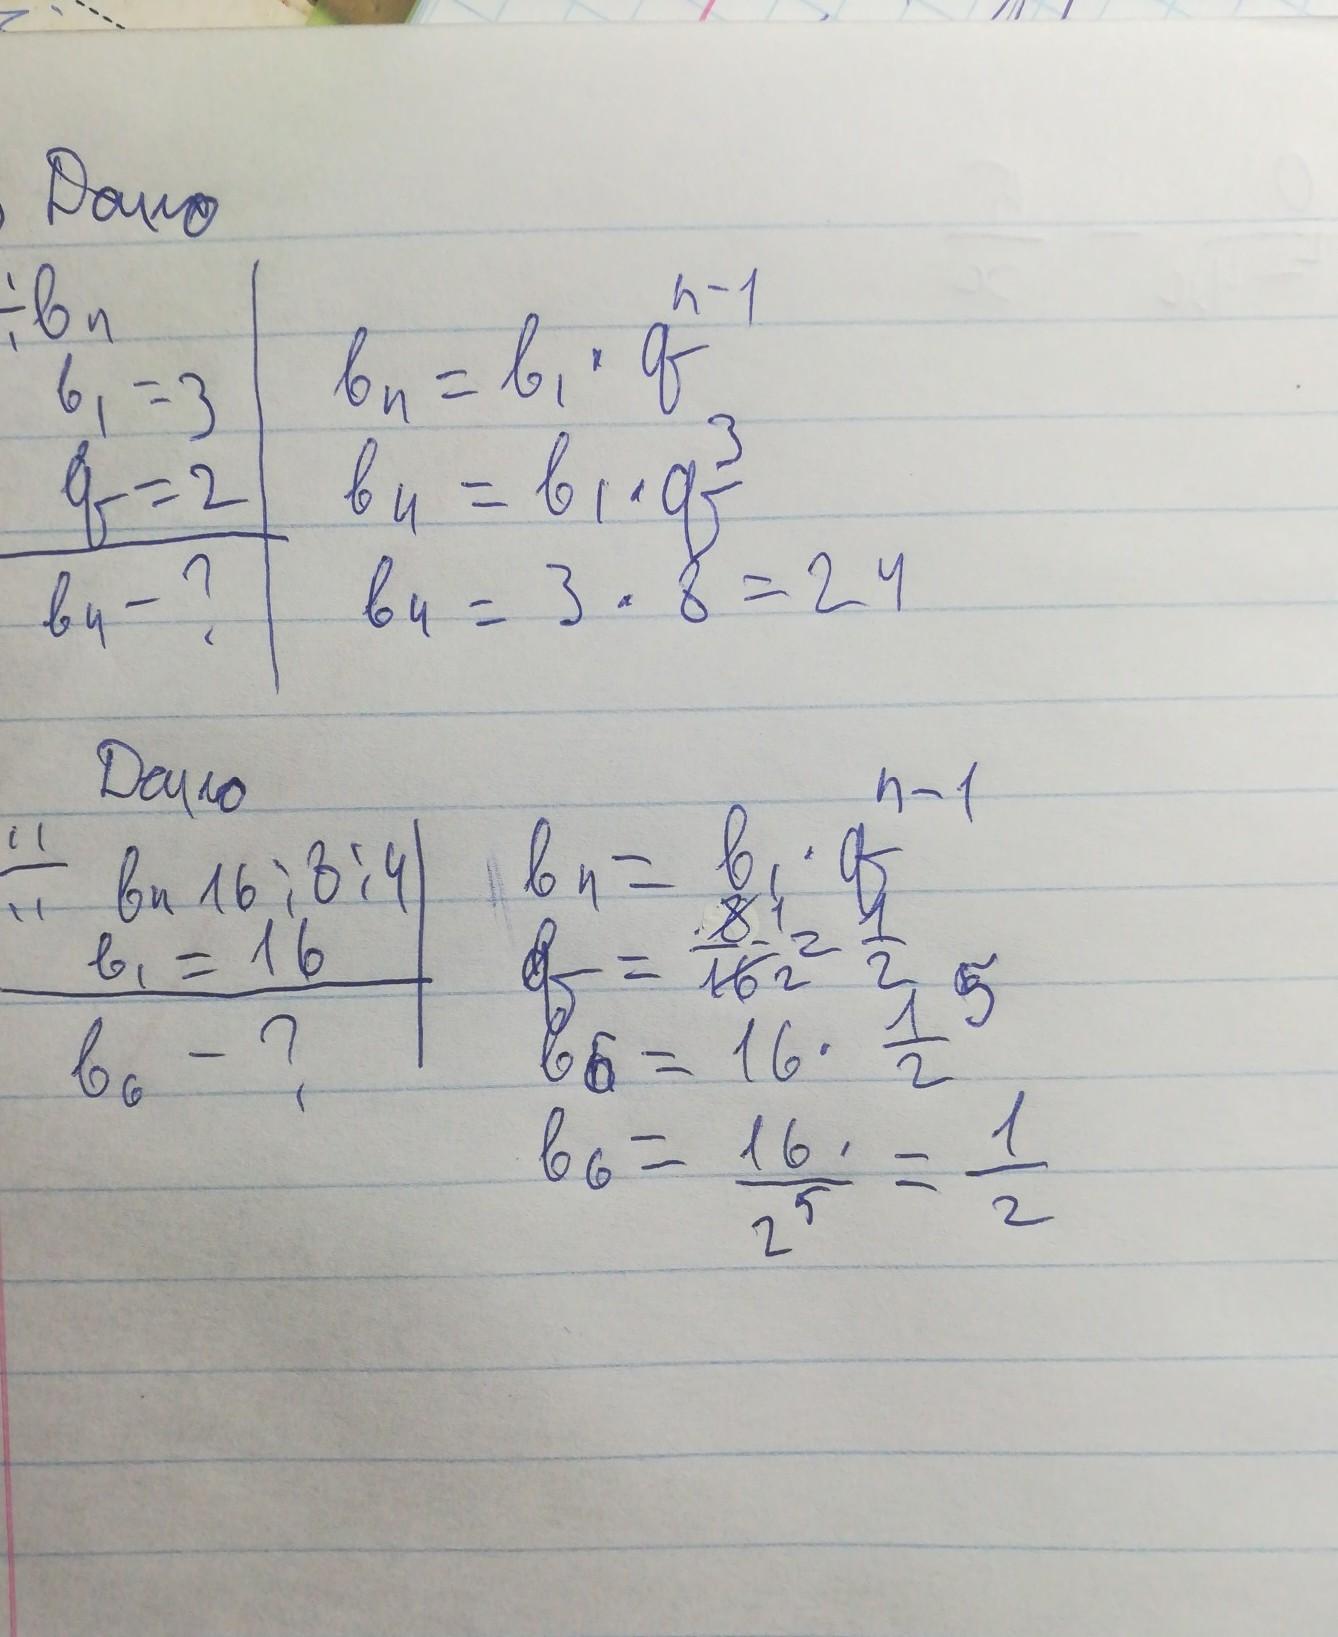 Дано
÷ bn
b₁ = 3
q = 2
b₄ - ?
bn = b₁ · qⁿ⁻¹
b₄ = b₁ · q³
b₄ = 3 · 8 = 24
Дано
÷ bn 16; 8; 4
b₁ = 16
b₆ - ?
bn = b₁ · qⁿ⁻¹
q = 8/16 1/2 = 1/2
b₆ = 16 · 1/2 ⁵
b₆ = 16 · / 2⁵ = 1/2